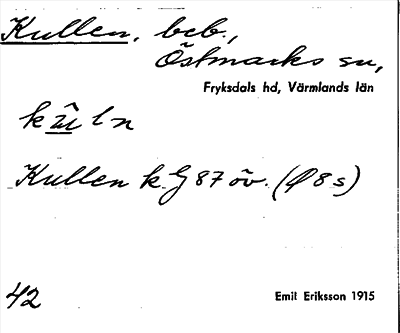 Kullen, beb.,
Östmarks sn,
Fryksdals hd, Värmlands län
kûln
Kullen k. G 87 öv. (Ø 8 s)
42
Emil Eriksson 1915